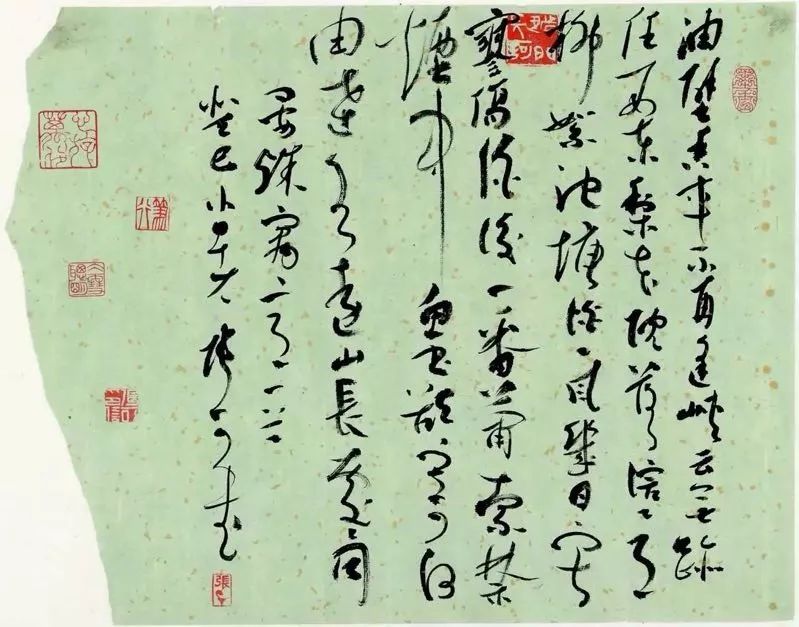 油壁香車不再逢峽云無跡
任西東梨花院落溶溶月
柳絮池塘淡淡風幾日寂
寥傷酒後一番蕭索禁
煙中魚書欲寄何
由達水遠山長處處同
晏殊寓
癸巳小 張 書